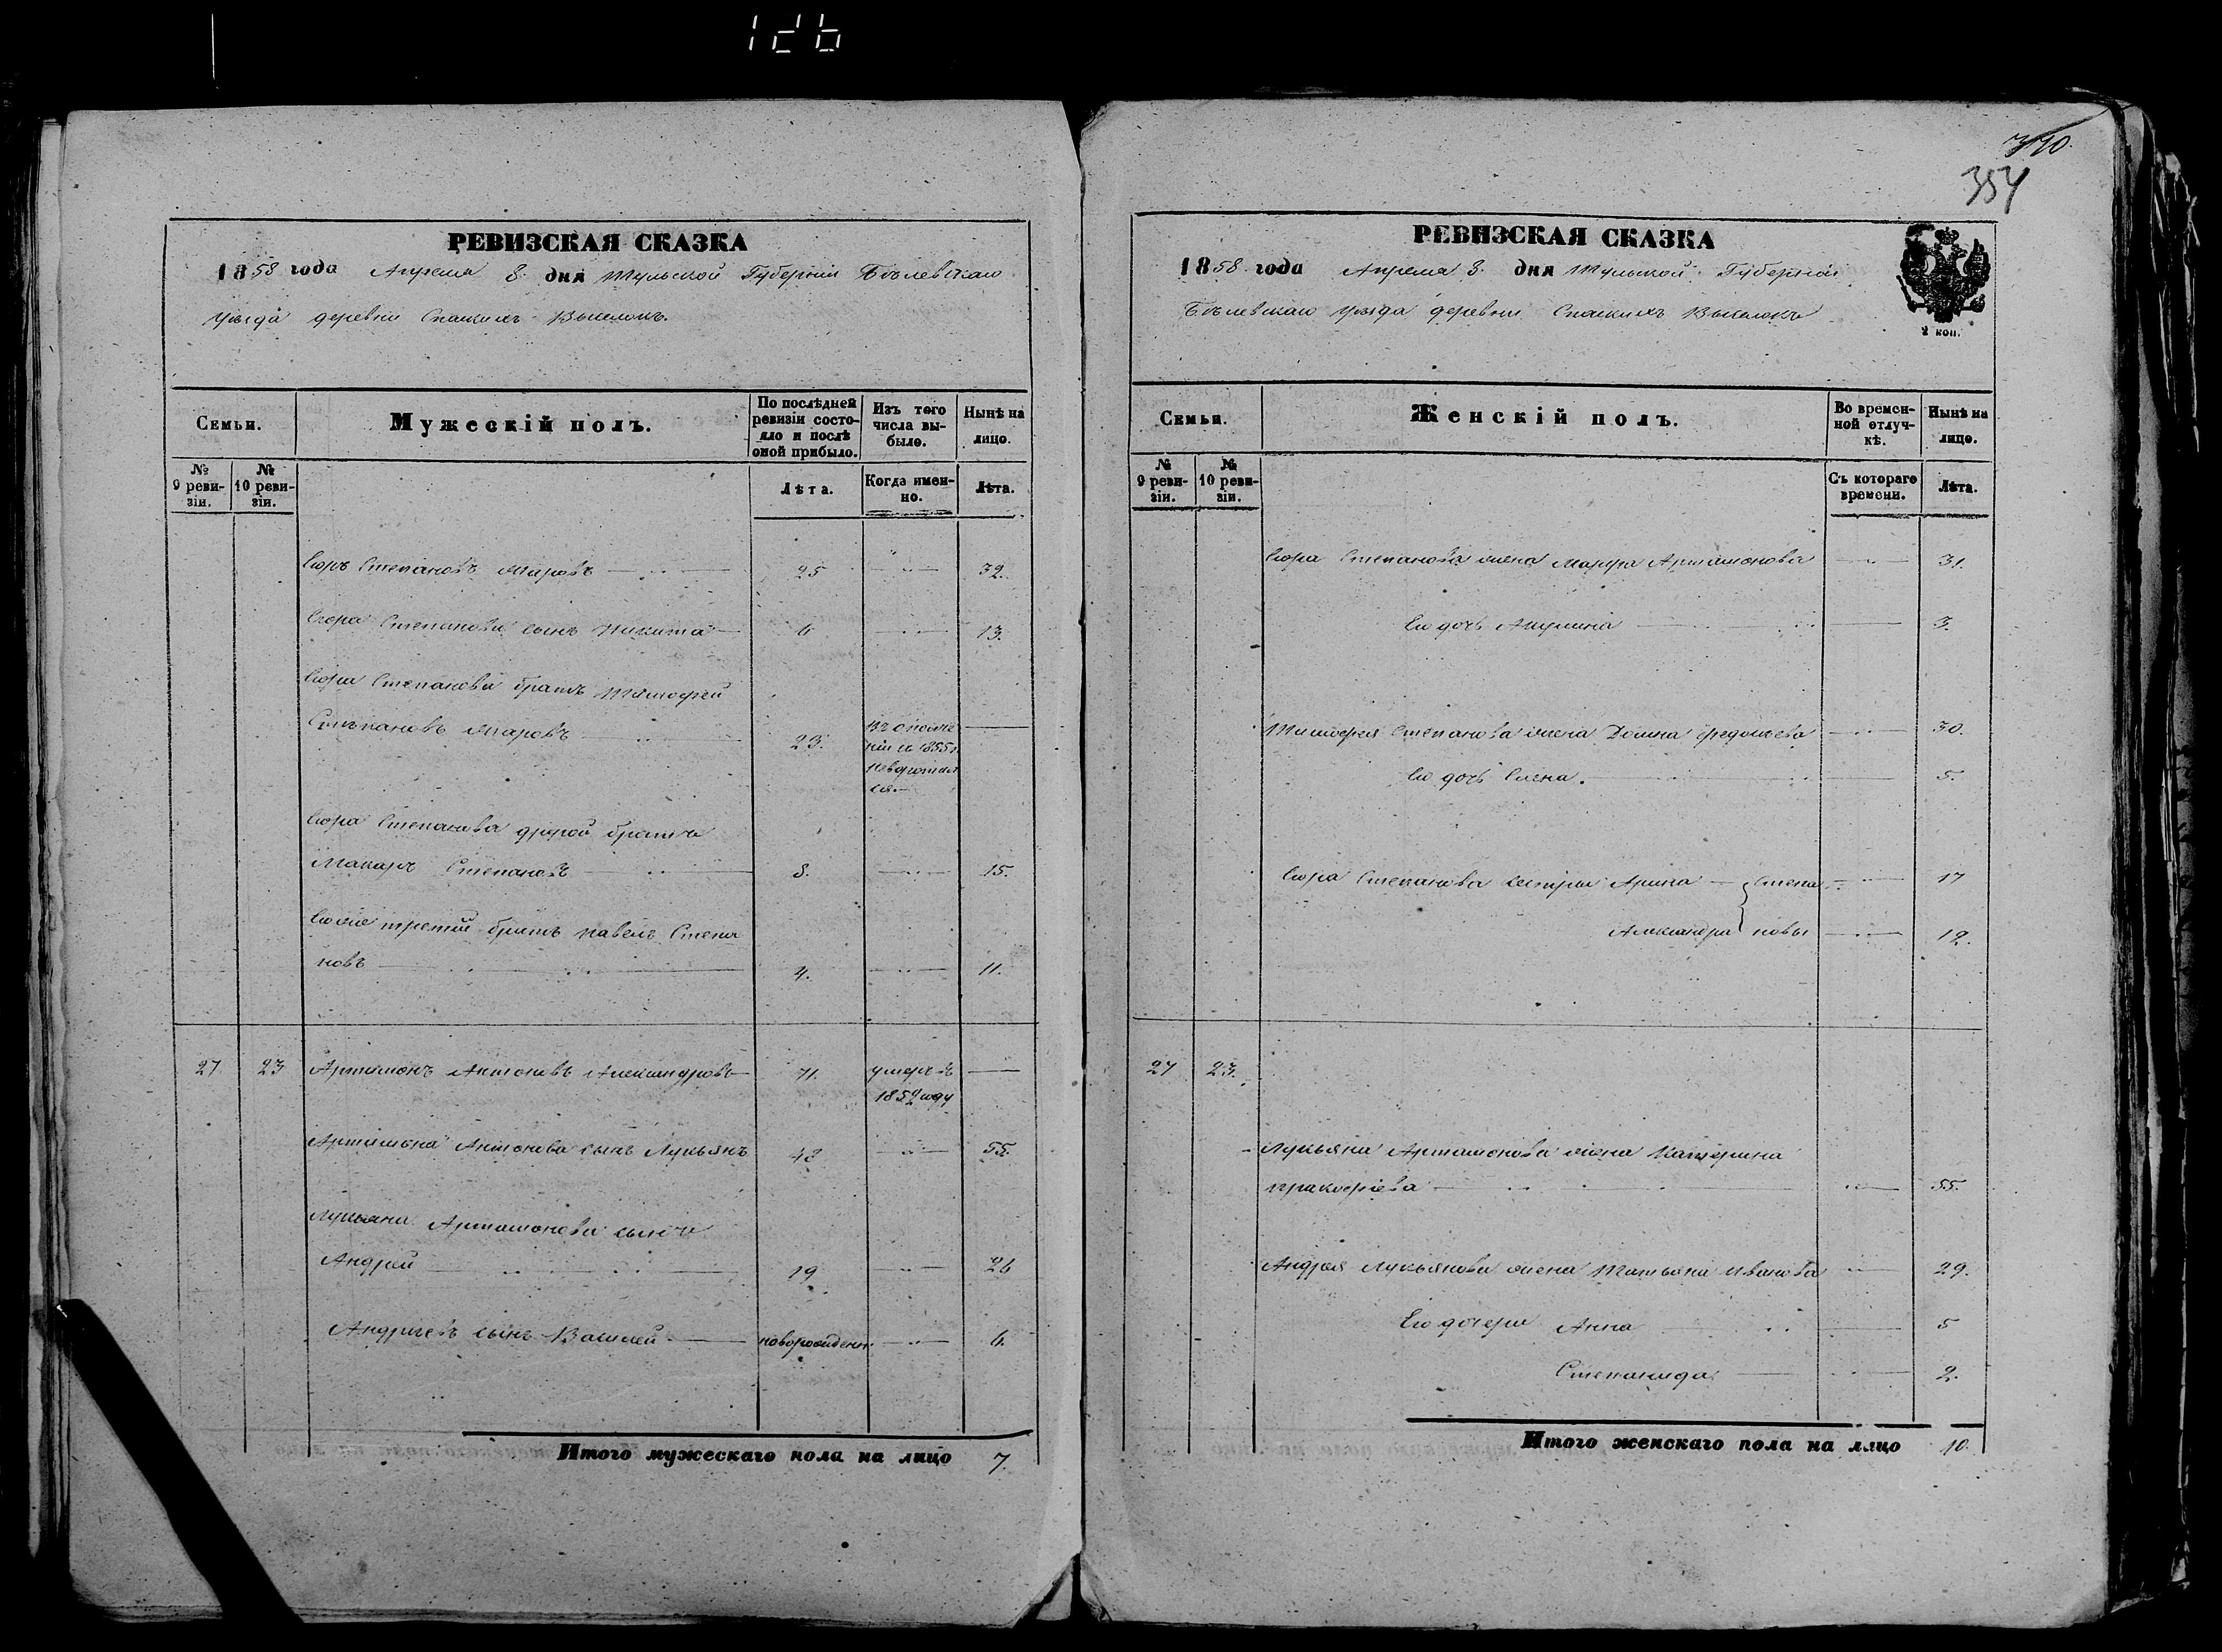 РЕВИЗСКАЯ СКАЗКА
1858 года Апреля 8 дня Тульской Губерніи Бѣлевскаго
уѣзда деревни Спаскихъ Выселокъ.
Семьи.
Мужескій полъ.
По послѣдней ревизіи состояло и послѣ оной прибыло.
Изъ того числа выбыло.
Нынѣ на лицо.
№ 9 ревизіи.
№ 10 ревизіи.
Лѣта.
Когда именно.
Лѣта.
Егоръ Степановъ Маровъ 25 32.
Егора Степанова сынъ Никита 6 13.
Егора Степанова братъ Тимофей
Степановъ Маровъ 23. въ ополче
ніи съ 1855 г.
невозвратил
ся.
Егора Степанова другой братъ
Макаръ Степановъ 8. 15.
Его же третій братъ Павелъ Степа
новъ 4. 11.
27 23 Артамонъ Антоновъ Александровъ 71. умеръ въ
1852 году
Артамона Антонова сынъ Лукьянъ 48 55.
Лукьяна Артамонова сынъ
Андрей 19 26
Андреевъ сынъ Василей новорожденн. 6.
Итого мужескаго пола на лицо 7.
340.
354
РЕВИЗСКАЯ СКАЗКА
1858 года Апреля 8. дня Тульской Губерніи
Бѣлевскаго уѣзда деревни Спаскихъ Выселокъ
2 коп.
Семьи.
Женскій полъ.
Во временной отлучкѣ.
Нынѣ на лицо.
№ 9 ревизіи.
№ 10 ревизіи.
Съ котораго времени.
Лѣта.
Егора Степанова жена Марфа Артамонова 31.
Его дочь Акулина 3.
Тимофея Степанова жена Домна Федотова 30.
Его дочь Елена. 5.
Егора Степанова сестры Арина Степа 17
Александра новы 12.
27 23.
Лукьяна Артамонова жена Катерина
Пракофіева 55.
Андрея Лукьянова жена Татьяна Иванова 29.
Его дочери Анна 5
Степанида 2.
Итого женскаго пола на лицо 10.